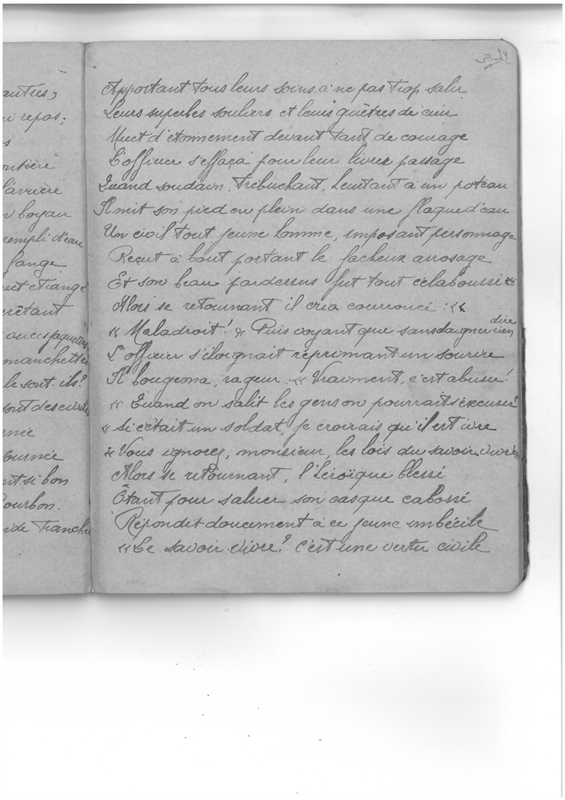 autres;
repas;
d'eau
fange
manchettes
le sont-ils?
sont des civils
tournée
si bon
Bourbon.
Apportant tous leurs soins à ne pas trop salir
Leurs superbes souliers et leurs guêtres de cuir
Muet d'étonnement devant tant de courage
L'officier s'effaça pour leur livrer passage
Quand soudain, trébuchant, heurtant à un poteau
Il mit son pied en plein dans une flaque d'eau
Un civil tout jeune homme, imposant personnage
Reçut à bout portant le facheux arrosage
Et son beau pardessus fut tout éclaboussé
Alors se retournant il cria courroucé : «
« Maladroit! » Puis voyant que sans daigner rien dire
L'officier s'éloignait réprimant un sourire
Il bougonna, rageur. « Vraiment, c'est abusé!
« Quand on salit les gens on pourrait s'excuser!
« Si c'était un soldat, je croirais qu'il est ivre
« Vous ignorez, monsieur, les lois du savoir-vivre »
Alors se retournant, l'héroïque blessé
Otant pour saluer son casque cabossé
Répondit doucement à ce jeune imbécile
« Le savoir-vivre? c'est une vertu civile